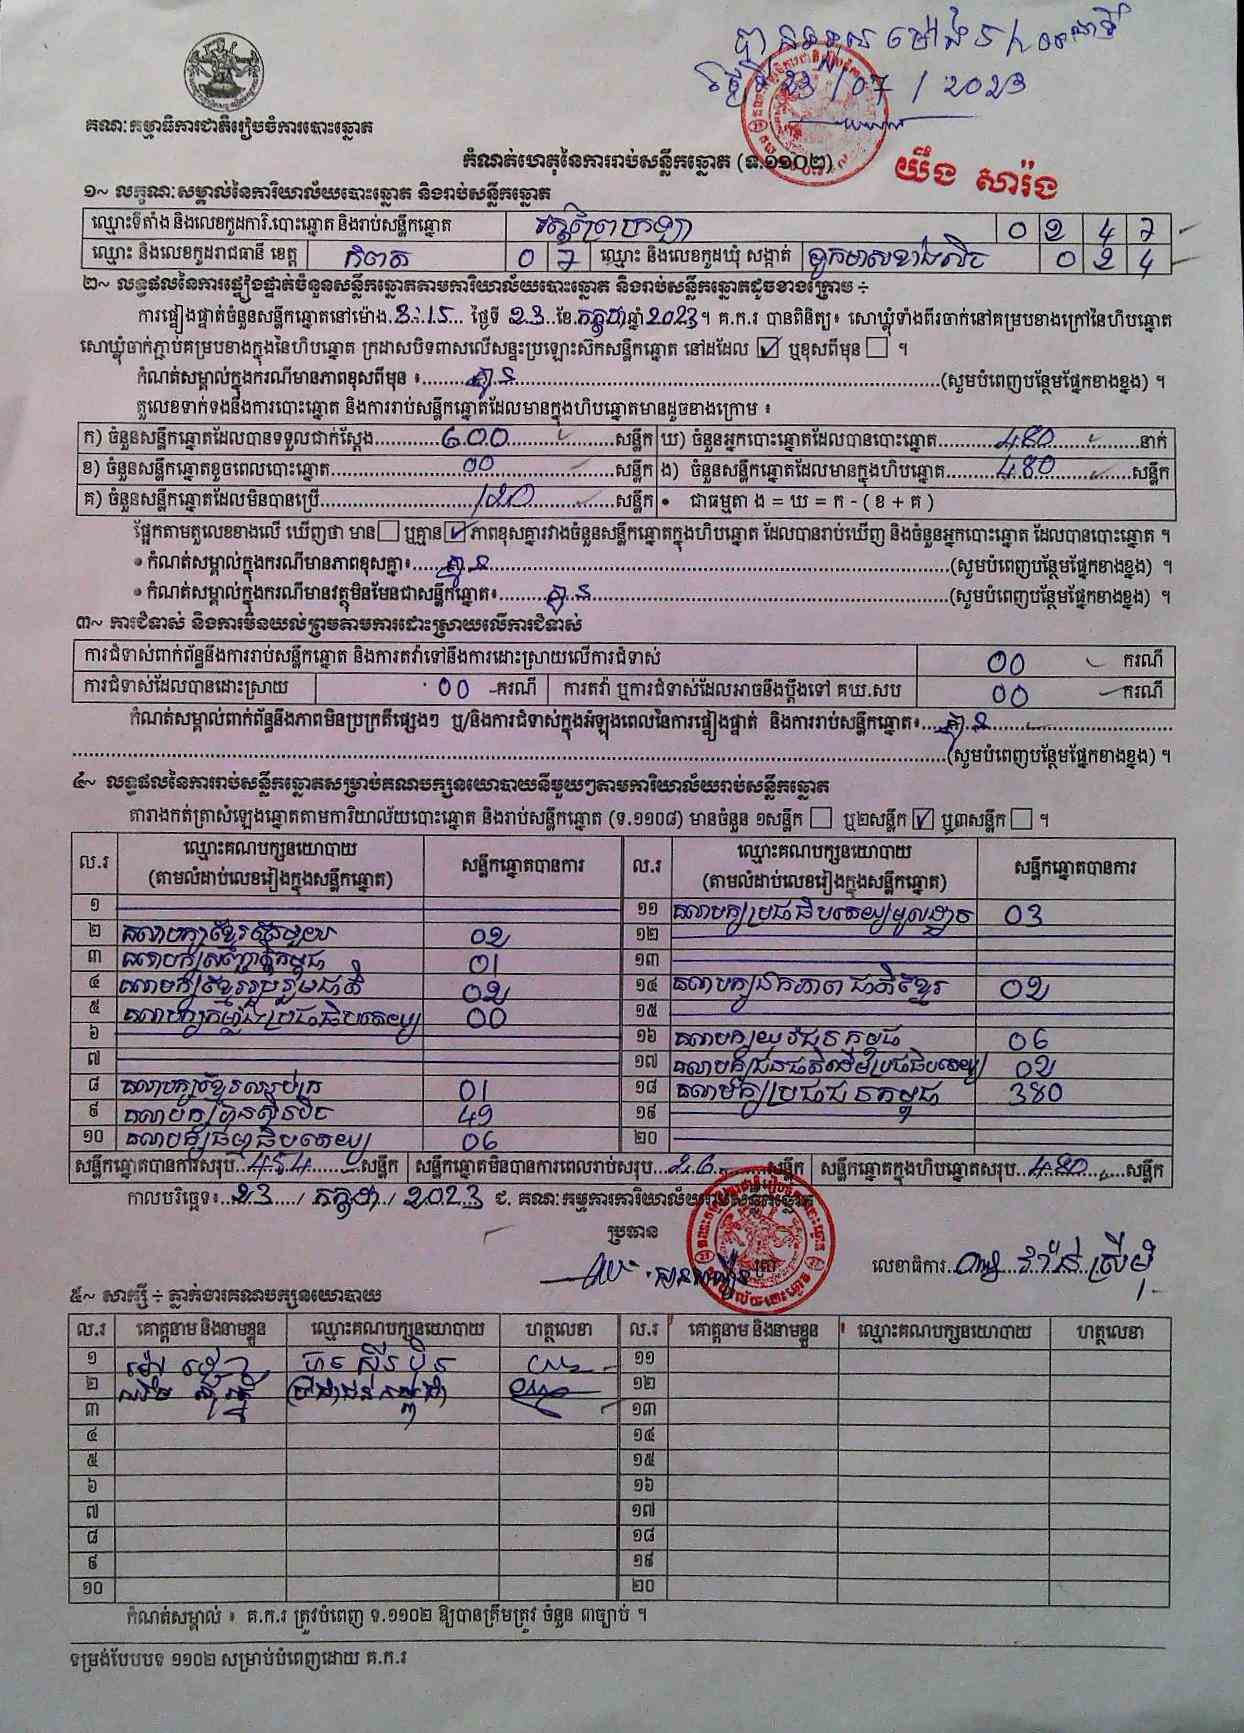 បានទទួល ម៉ោង
ថ្ងៃទី 23/07/2023
គណៈកម្មាធិការជាតិរៀបចំការបោះឆ្នោត
កំណត់ហេតុនៃការរាប់សន្លឹកឆ្នោត (ទ.១១០២)
យឹង សារ៉ង
១~ លក្ខណៈសម្គាល់នៃការិយាល័យបោះឆ្នោត និងរាប់សន្លឹកឆ្នោត
ឈ្មោះទីតាំង និងលេខកូដការិ.បោះឆ្នោត និងរាប់សន្លឹកឆ្នោត 0 2 4 7
ឈ្មោះ និងលេខកូដរាជធានី ខេត្ត កំពត 0 7 ឈ្មោះ និងលេខកូដឃុំ សង្កាត់ ទូកមាសខាងលិច 0 2 4
២~ លទ្ធផលនៃការផ្ទៀងផ្ទាត់ចំនួនសន្លឹកឆ្នោតតាមការិយាល័យបោះឆ្នោត និងរាប់សន្លឹកឆ្នោតដូចខាងក្រោម ÷
ការផ្ទៀងផ្ទាត់ចំនួនសន្លឹកឆ្នោតនៅម៉ោង 3:15 ថ្ងៃទី 23 ខែ កក្កដា ឆ្នាំ 2023 ។ គ.ក.រ បានពិនិត្យ៖ សោឃ្លុំទាំងពីរចាក់នៅគម្របខាងក្រៅនៃហិបឆ្នោត
សោឃ្លុំចាក់ភ្ជាប់គម្របខាងក្នុងនៃហិបឆ្នោត ក្រដាសបិទពាសលើសន្ទះប្រឡោះស៊កសន្លឹកឆ្នោត នៅដដែល ☑ ឬខុសពីមុន ☐ ។
កំណត់សម្គាល់ក្នុងករណីមានភាពខុសពីមុន ៖ គ្មាន (សូមបំពេញបន្ថែមផ្នែកខាងខ្នង) ។
តួលេខទាក់ទងនឹងការបោះឆ្នោត និងការរាប់សន្លឹកឆ្នោតដែលមានក្នុងហិបឆ្នោតមានដូចខាងក្រោម ៖
ក) ចំនួនសន្លឹកឆ្នោតដែលបានទទួលជាក់ស្តែង 600 សន្លឹក ឃ) ចំនួនអ្នកបោះឆ្នោតដែលបានបោះឆ្នោត 480 នាក់
ខ) ចំនួនសន្លឹកឆ្នោតខូចពេលបោះឆ្នោត 00 សន្លឹក ង) ចំនួនសន្លឹកឆ្នោតដែលមានក្នុងហិបឆ្នោត 480 សន្លឹក
គ) ចំនួនសន្លឹកឆ្នោតដែលមិនបានប្រើ 120 សន្លឹក • ជាធម្មតា ង = ឃ = ក - ( ខ + គ )
ផ្អែកតាមតួលេខខាងលើ ឃើញថា មាន ☐ ឬគ្មាន ☑ ភាពខុសគ្នារវាងចំនួនសន្លឹកឆ្នោតក្នុងហិបឆ្នោត ដែលបានរាប់ឃើញ និងចំនួនអ្នកបោះឆ្នោត ដែលបានបោះឆ្នោត ។
• កំណត់សម្គាល់ក្នុងករណីមានភាពខុសគ្នា៖ គ្មាន (សូមបំពេញបន្ថែមផ្នែកខាងខ្នង) ។
• កំណត់សម្គាល់ក្នុងករណីមានវត្ថុមិនមែនជាសន្លឹកឆ្នោត៖ គ្មាន (សូមបំពេញបន្ថែមផ្នែកខាងខ្នង) ។
៣~ ការជំទាស់ និងការមិនយល់ព្រមតាមការដោះស្រាយលើការជំទាស់
ការជំទាស់ពាក់ព័ន្ធនឹងការរាប់សន្លឹកឆ្នោត និងការតវ៉ាទៅនឹងការដោះស្រាយលើការជំទាស់ 00 ករណី
ការជំទាស់ដែលបានដោះស្រាយ 00 ករណី ការតវ៉ា ឬការជំទាស់ដែលអាចនឹងប្តឹងទៅ គឃ.សប 00 ករណី
កំណត់សម្គាល់ពាក់ព័ន្ធនឹងភាពមិនប្រក្រតីផ្សេងៗ ឬ/និងការជំទាស់ក្នុងអំឡុងពេលនៃការផ្ទៀងផ្ទាត់ និងការរាប់សន្លឹកឆ្នោត៖ គ្មាន
(សូមបំពេញបន្ថែមផ្នែកខាងខ្នង) ។
៤~ លទ្ធផលនៃការរាប់សន្លឹកឆ្នោតសម្រាប់គណបក្សនយោបាយនីមួយៗតាមការិយាល័យរាប់សន្លឹកឆ្នោត
តារាងកត់ត្រាសំឡេងឆ្នោតតាមការិយាល័យបោះឆ្នោត និងរាប់សន្លឹកឆ្នោត (ទ.១១០៨) មានចំនួន ១សន្លឹក ☐ ឬ២សន្លឹក ☑ ឬ៣សន្លឹក ☐ ។
ល.រ ឈ្មោះគណបក្សនយោបាយ (តាមលំដាប់លេខរៀងក្នុងសន្លឹកឆ្នោត) សន្លឹកឆ្នោតបានការ ល.រ ឈ្មោះគណបក្សនយោបាយ (តាមលំដាប់លេខរៀងក្នុងសន្លឹកឆ្នោត) សន្លឹកឆ្នោតបានការ
១ ១១ គណបក្សប្រជាធិបតេយ្យមូលដ្ឋាន 03
២ គណបក្សខ្មែរតែមួយ 02 ១២
៣ គណបក្ស កម្ពុជា 01 ១៣
៤ គណបក្សខ្មែររួបរួមជាតិ 02 ១៤ គណបក្សឯកភាពជាតិខ្មែរ 02
៥ គណបក្សកម្លាំងប្រជាធិបតេយ្យ 00 ១៥
៦ ១៦ គណបក្សយុវជនកម្ពុជា 06
៧ ១៧ គណបក្សជនជាតិដើមប្រជាធិបតេយ្យ 02
៨ គណបក្សខ្មែរឈប់ក្រ 01 ១៨ គណបក្សប្រជាជនកម្ពុជា 380
៩ គណបក្សហ្វ៊ុនស៊ិនប៉ិច 49 ១៩
១០ គណបក្សធម្មាធិបតេយ្យ 06 ២០
សន្លឹកឆ្នោតបានការសរុប 454 សន្លឹក សន្លឹកឆ្នោតមិនបានការពេលរាប់សរុប 26 សន្លឹក សន្លឹកឆ្នោតក្នុងហិបឆ្នោតសរុប 480 សន្លឹក
កាលបរិច្ឆេទ៖ 23 / កក្កដា / 2023 ជ. គណៈកម្មការការិយាល័យរាប់សន្លឹកឆ្នោត
ប្រធាន
លេខាធិការ
៥~ សាក្សី ÷ ភ្នាក់ងារគណបក្សនយោបាយ
ល.រ គោត្តនាម និងនាមខ្លួន ឈ្មោះគណបក្សនយោបាយ ហត្ថលេខា ល.រ គោត្តនាម និងនាមខ្លួន ឈ្មោះគណបក្សនយោបាយ ហត្ថលេខា
១ ហ៊្វុនស៊ិនប៉ិច ១១
២ ប្រជាជនកម្ពុជា ១២
៣ ១៣
៤ ១៤
៥ ១៥
៦ ១៦
៧ ១៧
៨ ១៨
៩ ១៩
១០ ២០
កំណត់សម្គាល់ ៖ គ.ក.រ ត្រូវបំពេញ ទ.១១០២ ឱ្យបានត្រឹមត្រូវ ចំនួន ៣ច្បាប់ ។
ទម្រង់បែបបទ ១១០២ សម្រាប់បំពេញដោយ គ.ក.រ